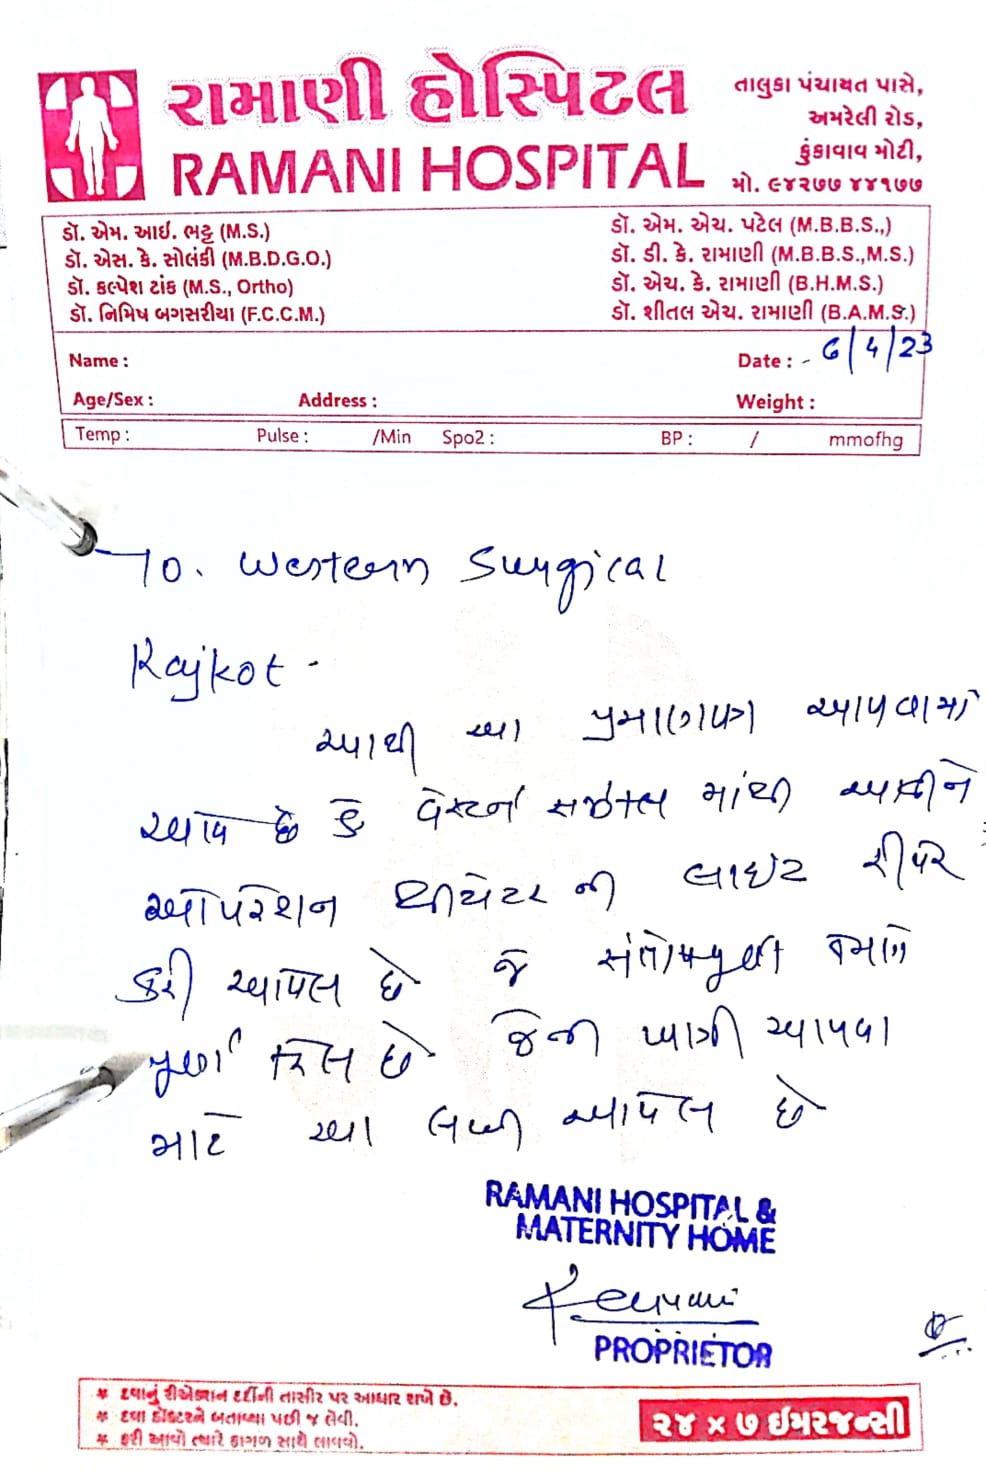 રામાણી હોસ્પિટલ
RAMANI HOSPITAL
તાલુકા પંચાયત પાસે,
અમરેલી રોડ,
કુંકાવાવ મોટી,
મો. ૯૪૨૭૭ ૪૪૧૭૭
ડૉ. એમ. આઈ. ભટ્ટ (M.S.)
ડૉ. એસ. કે. સોલંકી (M.B.D.G.O.)
ડૉ. કલ્પેશ ટાંક (M.S., Ortho)
ડૉ. નિમિષ બગસરીયા (F.C.C.M.)
ડૉ. એમ. એચ. પટેલ (M.B.B.S.,)
ડૉ. ડી. કે. રામાણી (M.B.B.S.,M.S.)
ડૉ. એચ. કે. રામાણી (B.H.M.S.)
ડૉ. શીતલ એચ. રામાણી (B.A.M.S.)
Name : Date : - 6/4/23
Age/Sex : Address : Weight :
Temp : Pulse : /Min Spo2 : BP : / mmofhg
To. Western Surgical
Rajkot -
આથી આ પ્રમાણપત્ર આપવામાં
આવે છે કે વેસ્ટર્ન સર્જીકલ માંથી આવીને
ઓપરેશન થીયેટર ની લાઇટ રીપેર
કરી આપેલ છે જે સંતોષપૂર્ણ
પૂર્ણ છે જેની ખાત્રી આપવા
માટે આ લખી આપેલ છે
RAMANI HOSPITAL &
MATERNITY HOME
PROPRIETOR
* દવાનું રીએક્શન દર્દીની તાસીર પર આધાર રાખે છે.
* દવા ડૉક્ટરને બતાવ્યા પછી જ લેવી.
* ફરી આવો ત્યારે કાગળ સાથે લાવવો.
૨૪ x ૭ ઈમરજન્સી